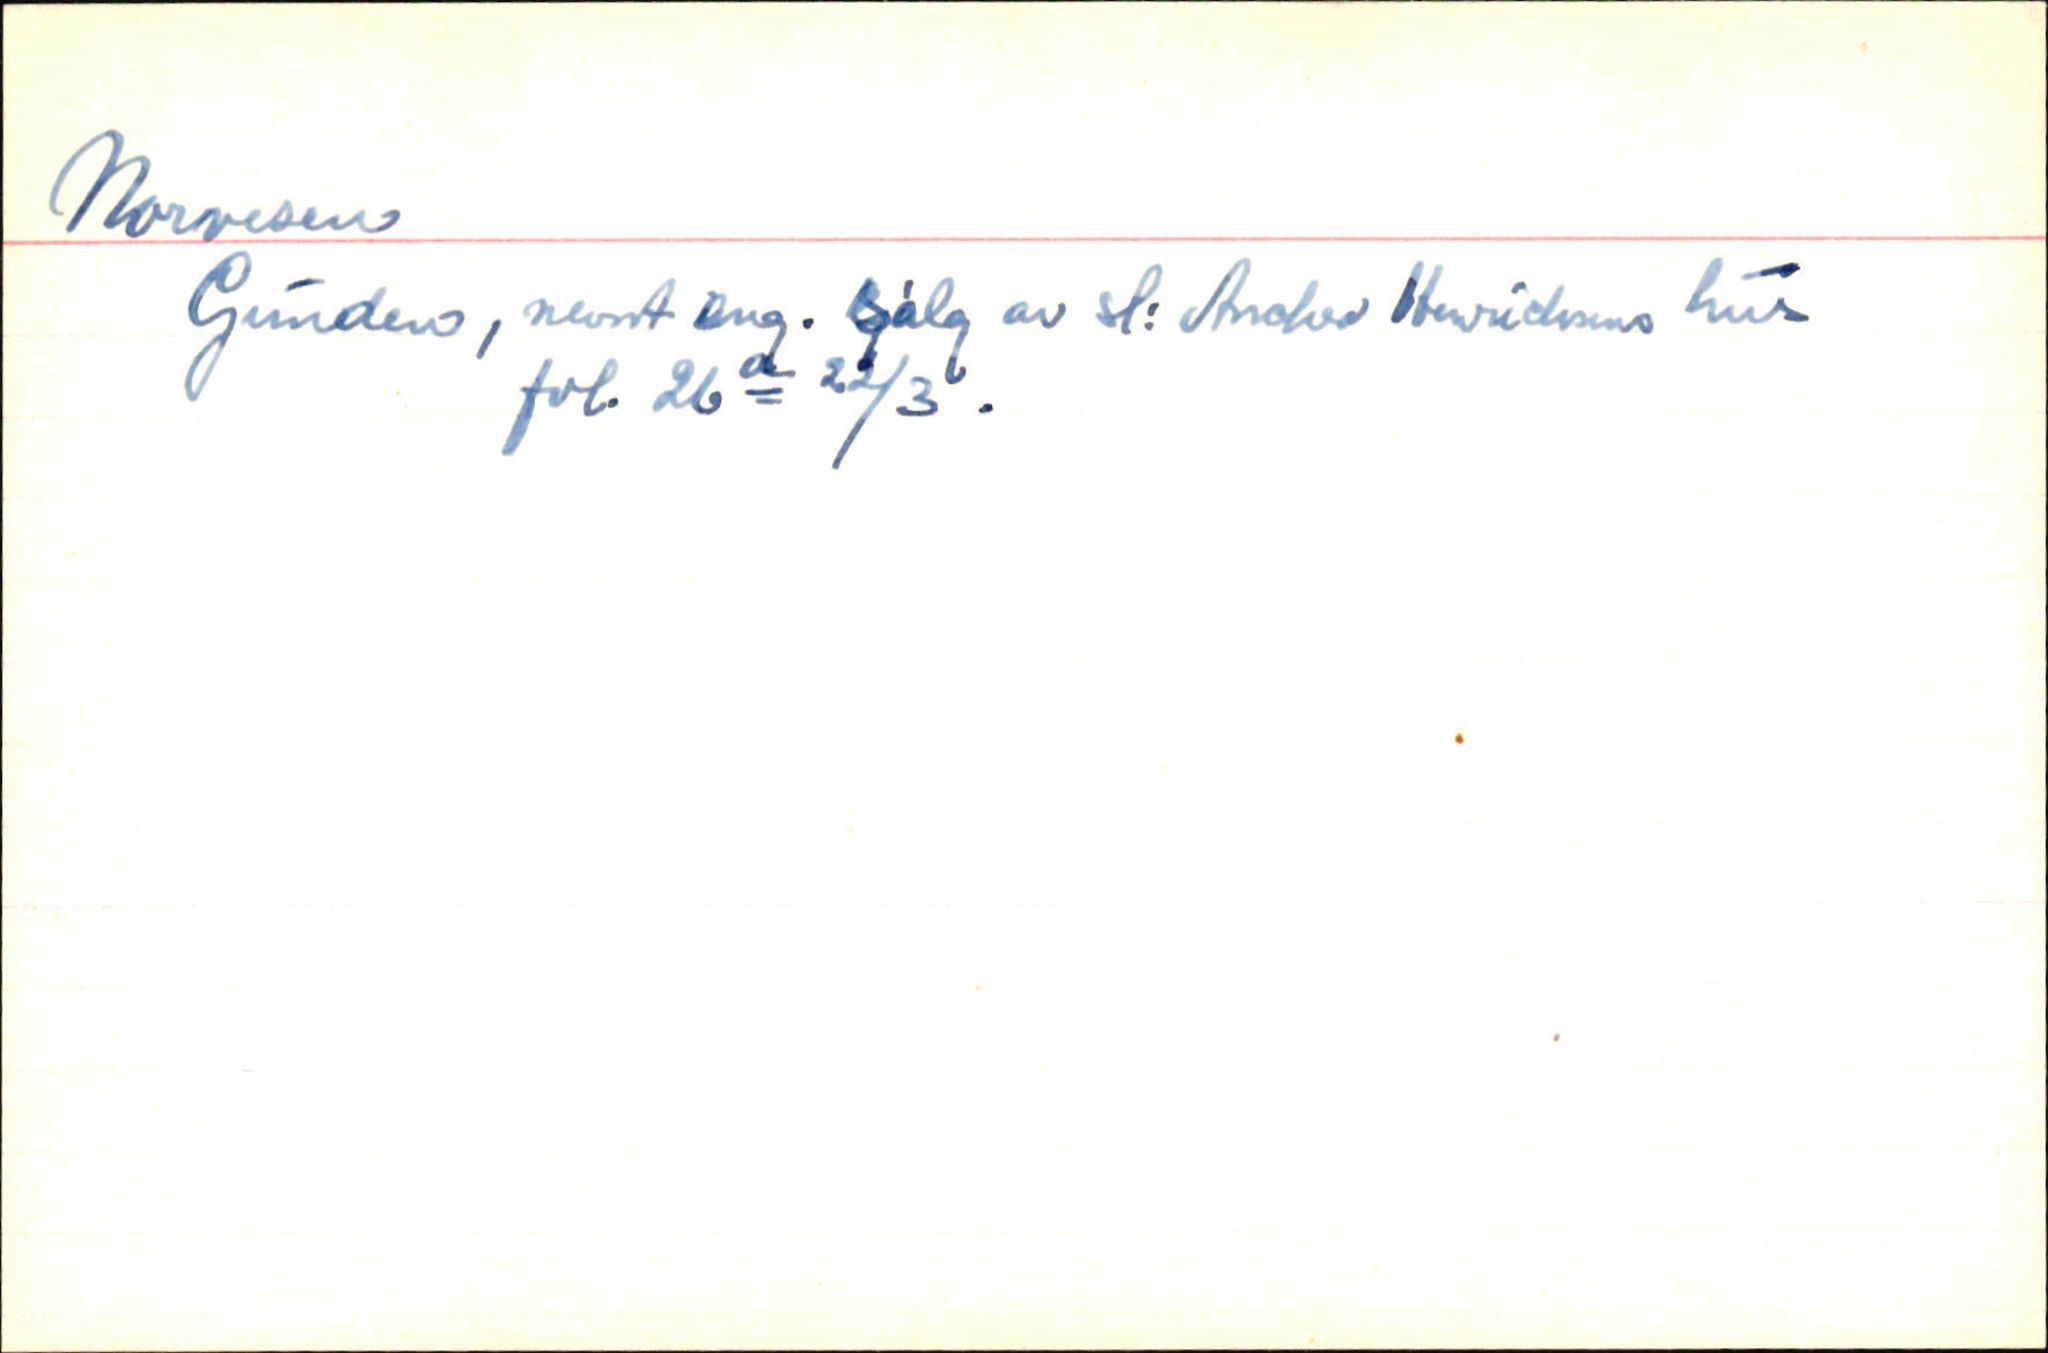 Norvesen
Gunden, nevnt ang. salg av sl: Anders Henrichsens hus
fol. 26a 22/3.